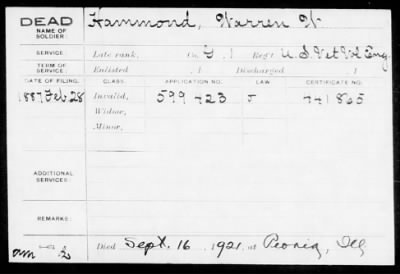 DEAD
NAME OF SOLDIER:
Hammond, Warren W.
SERVICE:
Late rank, Co. G. 1 Reg't U.S. Vet Vol Eng.
TERM OF SERVICE:
Enlisted 1 Discharged 1
DATE OF FILING. CLASS. APPLICATION NO. LAW. CERTIFICATE NO.
1887 Feb. 28 Invalid, 599423 J 741865
Widow,
Minor,
ADDITIONAL SERVICES:
REMARKS:
Died Sept. 16, 1921, at Peoria, Ill